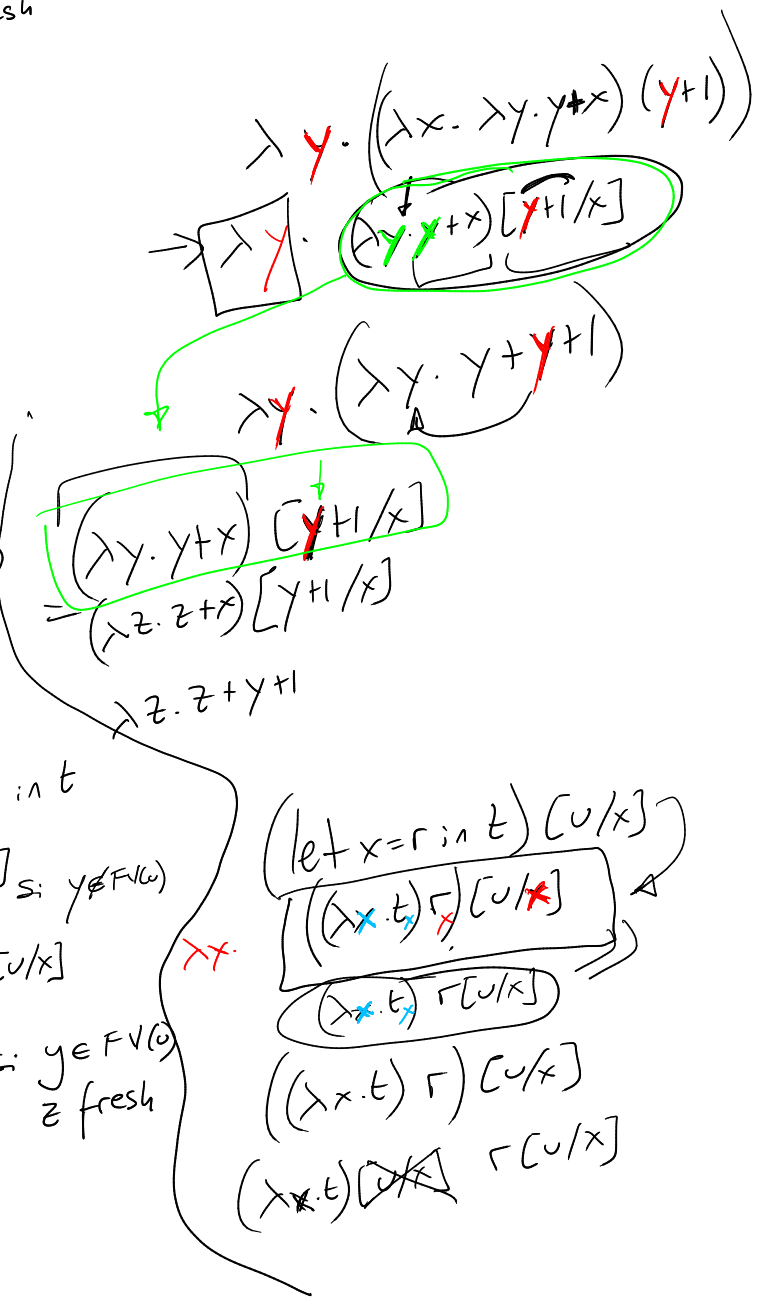 λ y. ((λx. λy. y+x) (y+1))
→ λ y. (λy. y+x) [y+1/x]
λy. (λy. y+y+1)
(λy. y+x) [y+1/x]
= (λz. z+x) [y+1/x]
λz. z+y+1
in t
si y∉FV(u)
[u/x]
si y∈FV(u)
z fresh
(let x=r in t) [u/x]
((λx.t) r) [u/x]
x x
λx.
(λx.t) r[u/x]
x
((λx.t) r) [u/x]
(λx.t) [u/x] r[u/x]